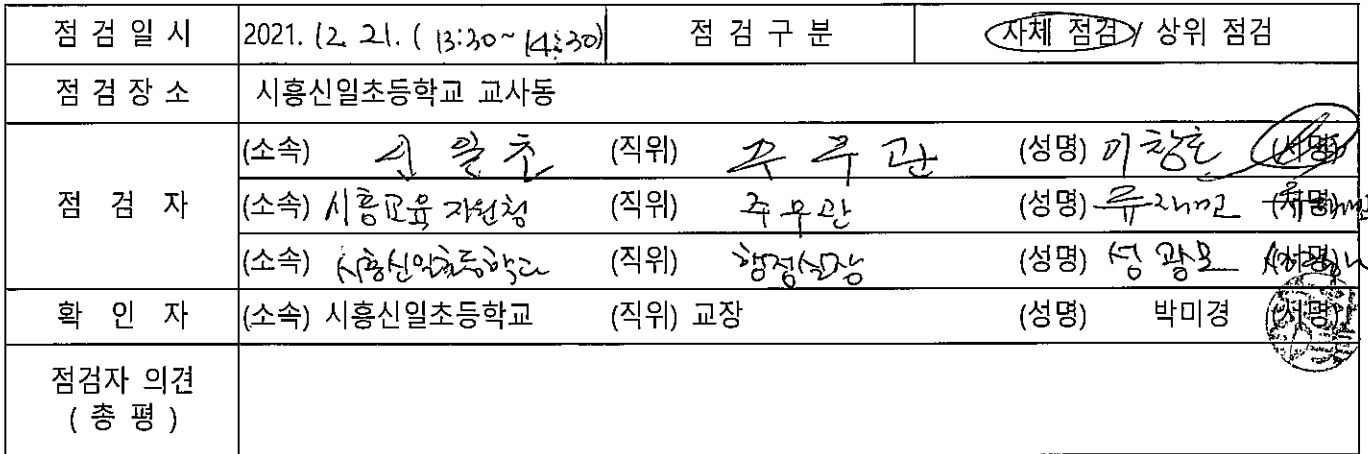 점 검 일 시 2021. 12. 21. ( 13:30 ~ 14:30) 점 검 구 분 자체 점검 / 상위 점검
점 검 장 소 시흥신일초등학교 교사동
(소속) 신일초 (직위) 주무관 (성명) 이창호 (서명)
점 검 자 (소속) 시흥교육지원청 (직위) 주무관 (성명) 류재민 (서명)
(소속) 시흥신일초등학교 (직위) 행정실장 (성명) 성광모 (서명)
확 인 자 (소속) 시흥신일초등학교 (직위) 교장 (성명) 박미경 (서명)
점검자 의견
( 총 평 )